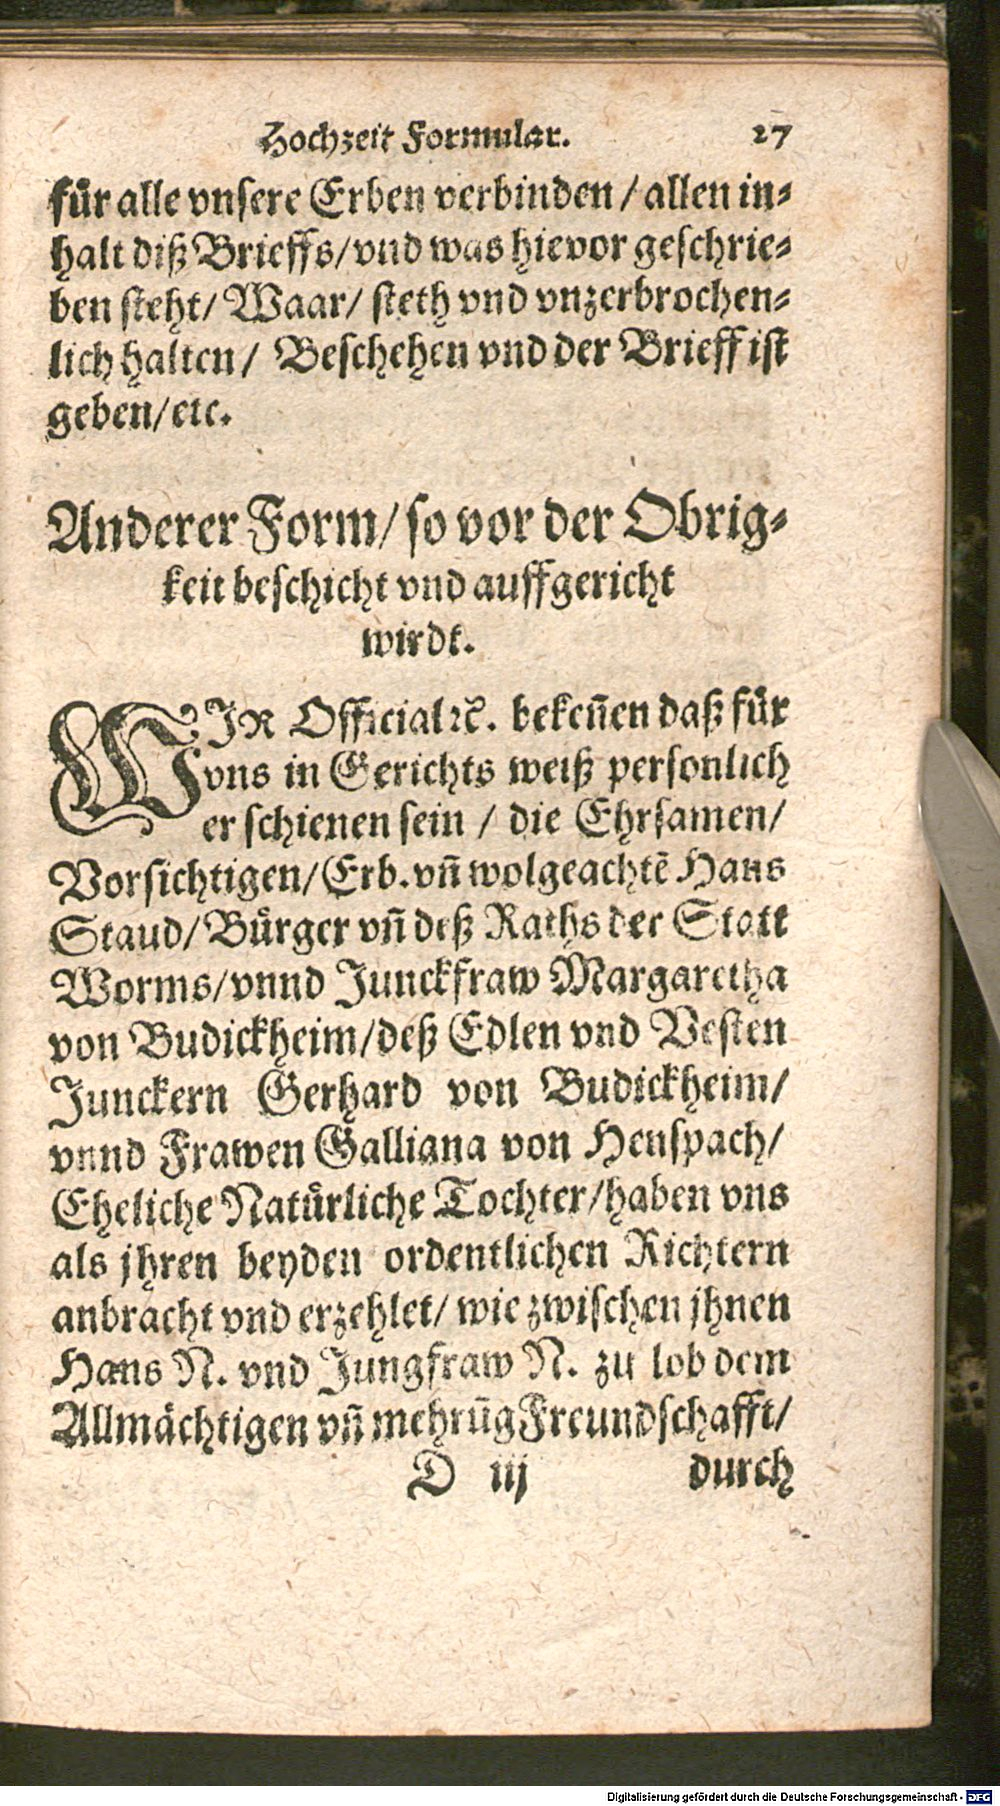 Hochzeit Formular. 27
fůr alle vnsere Erben verbinden / allen in⸗
halt diß Brieffs/vnd was hievor geschrie⸗
ben steht/ Waar/ steth vnd vnzerbrochen⸗
lich halten/ Beschehen vnd der Brieff ist
geben/etc.
Anderer Form/ so vor der Obrig⸗
keit beschicht vnd auffgericht
wirdt.
WIR Official ꝛc̃. bekeñen daß fůr
vns in Gerichts weiß personlich
er schienen sein / die Ehrsamen/
Vorsichtigen/Erb. vñ wolgeachtẽ Hans
Staud/ Bůrger vñ deß Raths der Statt
Worms/vnnd Junckfraw Margaretha
von Budickheim/deß Edlen vnd Vesten
Junckern Gerhard von Budickheim/
vnnd Frawen Galliana von Henspach/
Eheliche Natůrliche Tochter/haben vns
als jhren beyden ordentlichen Richtern
anbracht vnd erzehlet/ wie zwischen jhnen
Hans N. vnd Jungfraw N. zu lob dem
Allmächtigen vñ mehrũg Freundschafft/
D iij durch
Digitalisierung gefördert durch die Deutsche Forschungsgemeinschaft - DFG